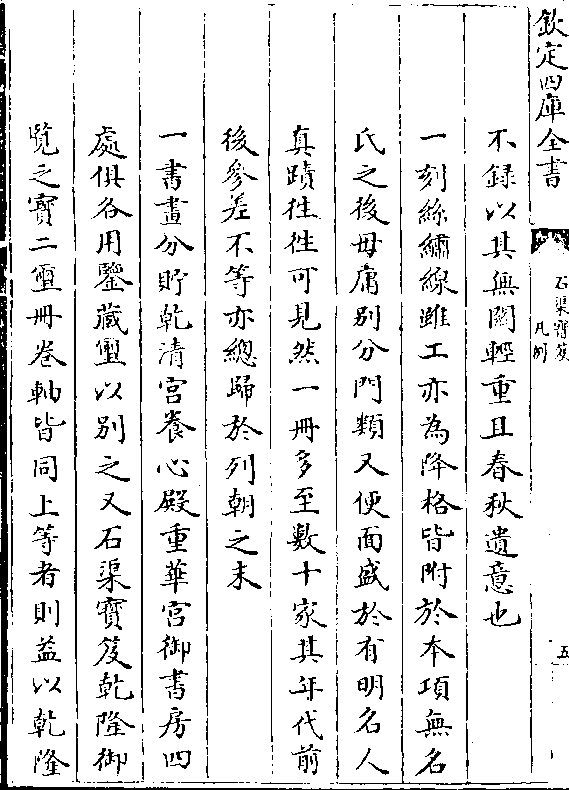 欽定四庫全書
石渠寳笈
凡例
五
不録以其無闗輕重且春秋遺意也
一刻絲繡線雖工亦為降格皆附於本項無名
氏之後毋庸别分門類又便面盛於有明名人
真蹟徃徃可見然一冊多至數十家其年代前
後參差不等亦總歸於列朝之末
一書畫分貯乾清宫養心殿重華宫御書房四
處俱各用鑒藏璽以别之又石渠寳笈乾隆御
覽之寳二璽冊卷軸皆同上等者則益以乾隆